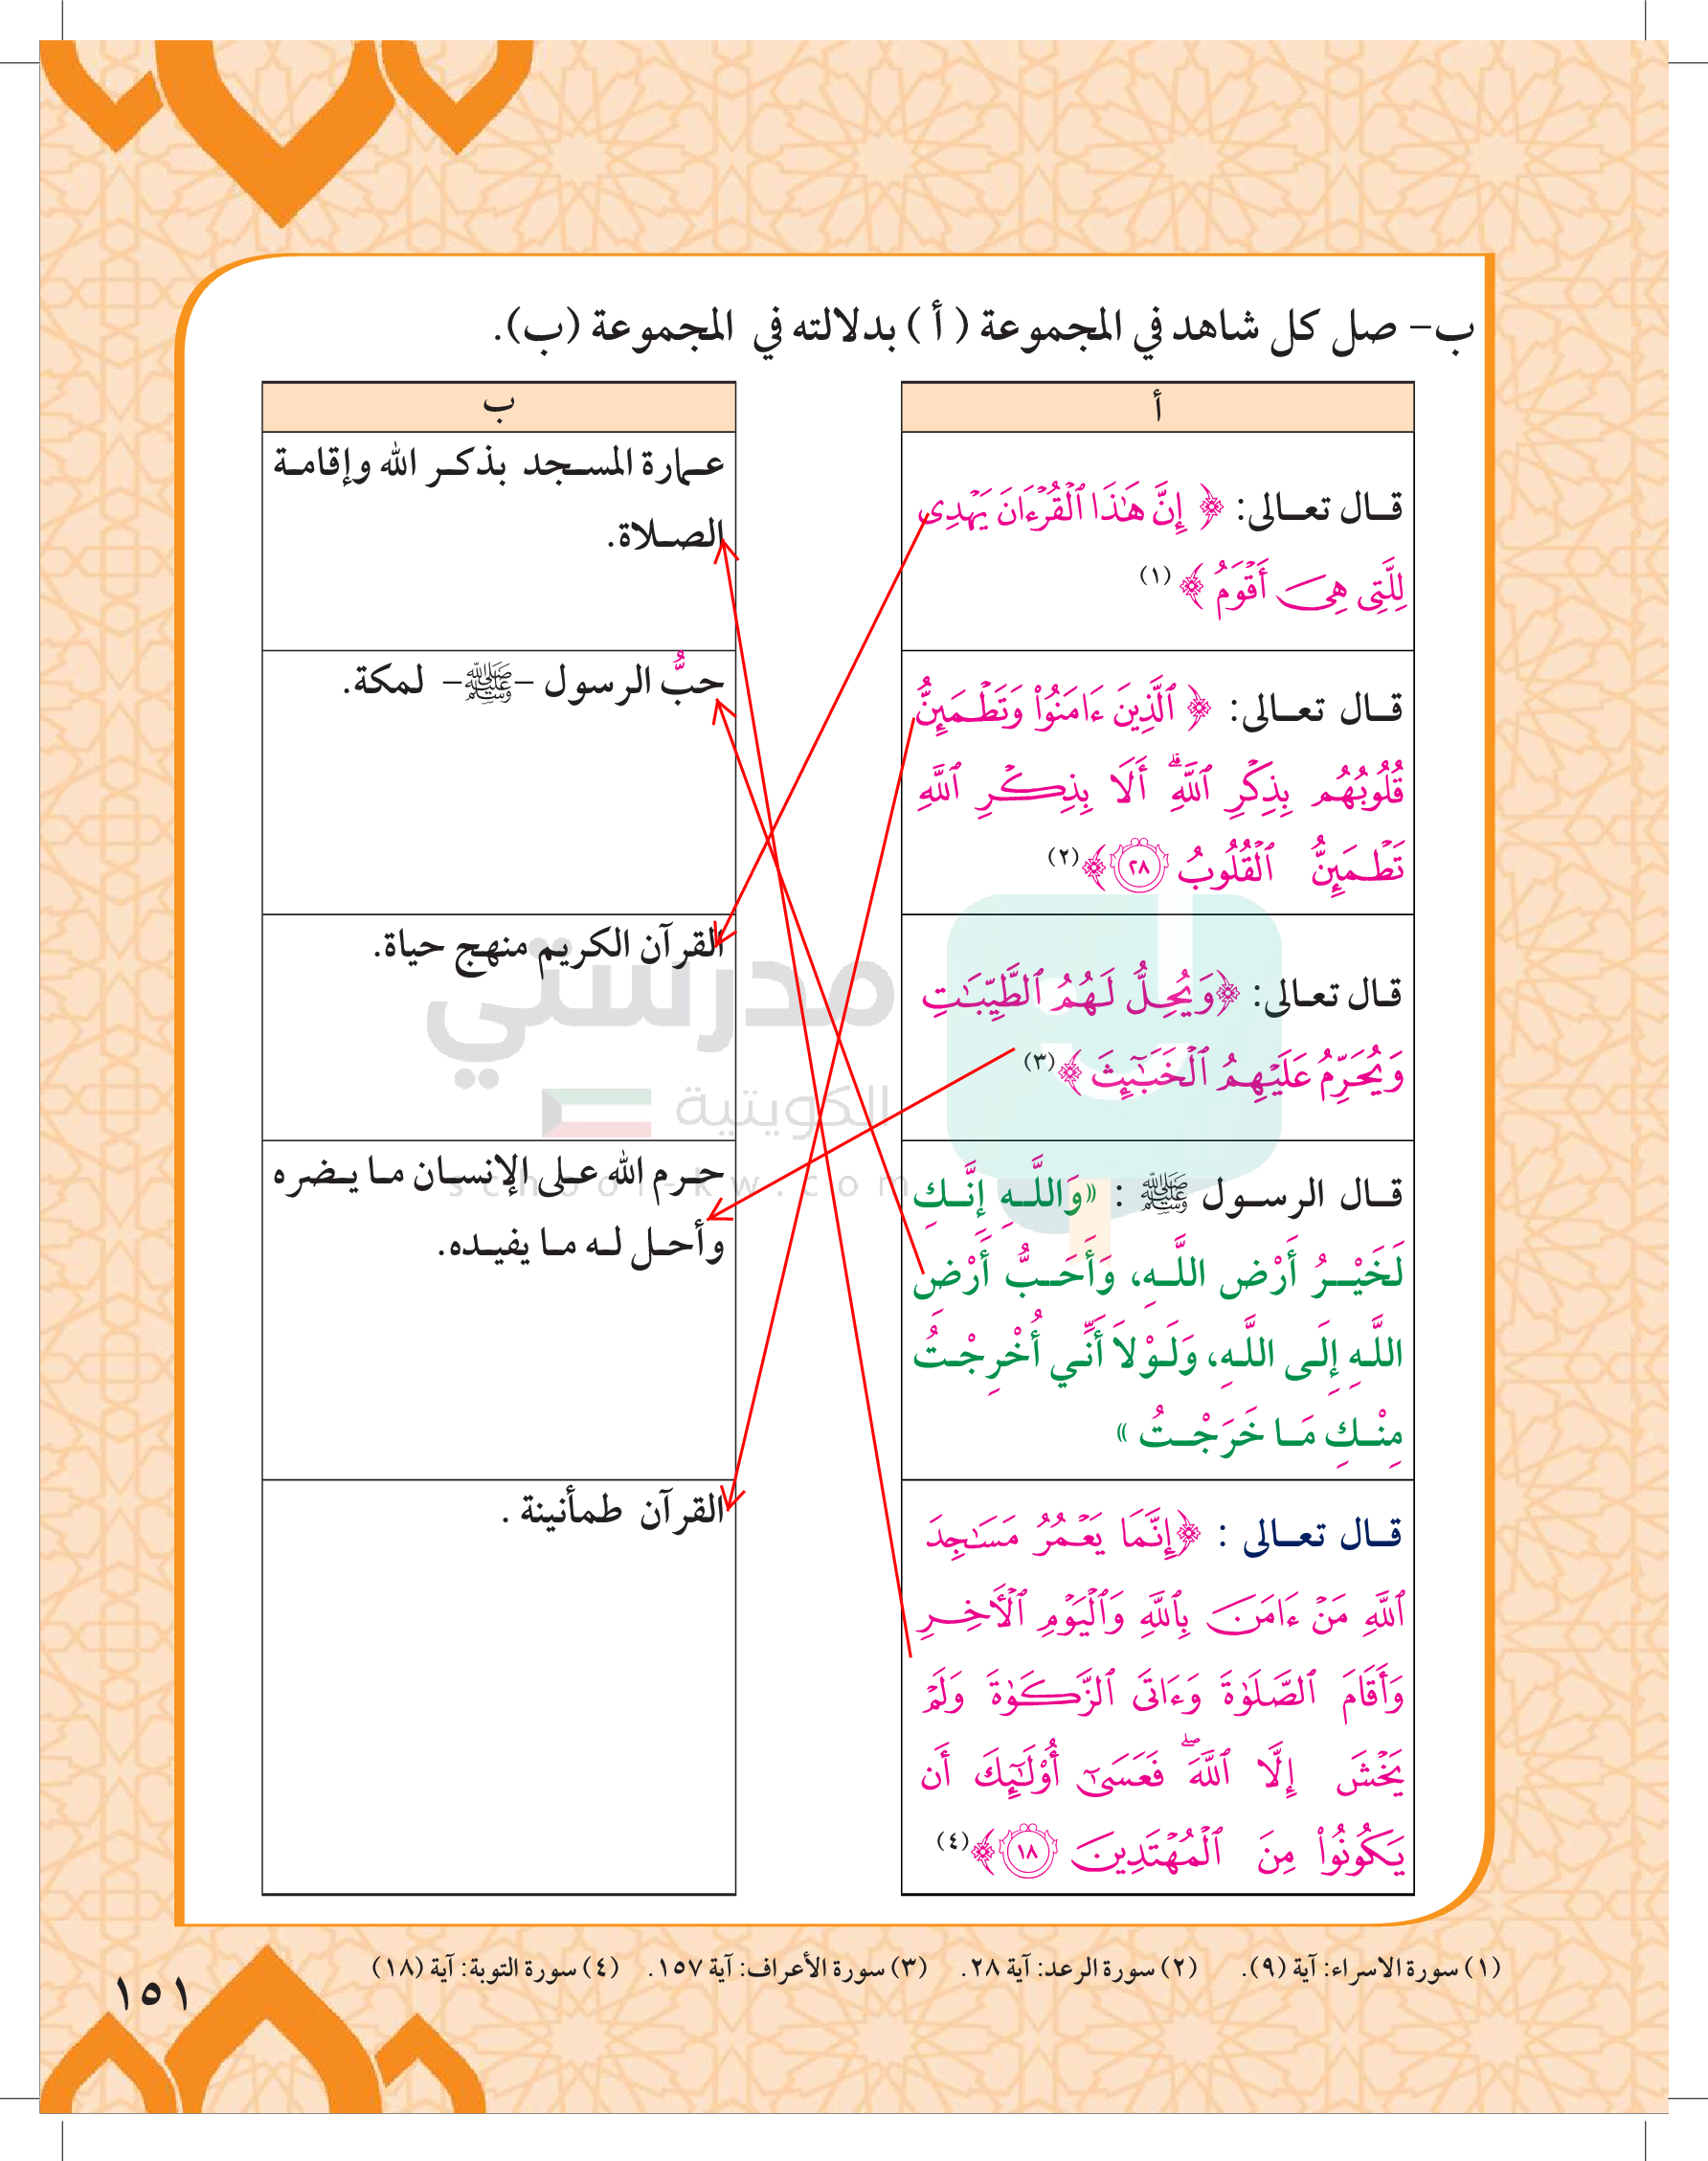 ب- صل كل شاهد في المجموعة ( أ ) بدلالته في المجموعة (ب).
أ
قال تعالى: ﴿ إِنَّ هَٰذَا ٱلْقُرْءَانَ يَهْدِى
لِلَّتِى هِىَ أَقْوَمُ ﴾ (١)
قال تعالى: ﴿ ٱلَّذِينَ ءَامَنُوا۟ وَتَطْمَئِنُّ
قُلُوبُهُم بِذِكْرِ ٱللَّهِ ۗ أَلَا بِذِكْرِ ٱللَّهِ
تَطْمَئِنُّ ٱلْقُلُوبُ ٢٨ ﴾ (٢)
قال تعالى: ﴿وَيُحِلُّ لَهُمُ ٱلطَّيِّبَٰتِ
وَيُحَرِّمُ عَلَيْهِمُ ٱلْخَبَٰٓئِثَ ﴾ (٣)
قال الرسول ﷺ : «وَاللَّهِ إِنَّكِ
لَخَيْرُ أَرْضِ اللَّهِ، وَأَحَبُّ أَرْضِ
اللَّهِ إِلَى اللَّهِ، وَلَوْلاَ أَنِّي أُخْرِجْتُ
مِنْكِ مَا خَرَجْتُ »
قال تعالى : ﴿إِنَّمَا يَعْمُرُ مَسَٰجِدَ
ٱللَّهِ مَنْ ءَامَنَ بِٱللَّهِ وَٱلْيَوْمِ ٱلْءَاخِرِ
وَأَقَامَ ٱلصَّلَوٰةَ وَءَاتَى ٱلزَّكَوٰةَ وَلَمْ
يَخْشَ إِلَّا ٱللَّهَ ۖ فَعَسَىٰٓ أُو۟لَٰٓئِكَ أَن
يَكُونُوا۟ مِنَ ٱلْمُهْتَدِينَ ١٨ ﴾ (٤)
ب
عمارة المسجد بذكر الله وإقامة
الصلاة.
حبُّ الرسول -ﷺ- لمكة.
القرآن الكريم منهج حياة.
حرم الله على الإنسان ما يضره
وأحل له ما يفيده.
القرآن طمأنينة .
مدرستي
الكويتية
school-kw.com
(١) سورة الاسراء: آية (٩). (٢) سورة الرعد: آية ٢٨. (٣) سورة الأعراف: آية ١٥٧. (٤) سورة التوبة: آية (١٨)
١٥١